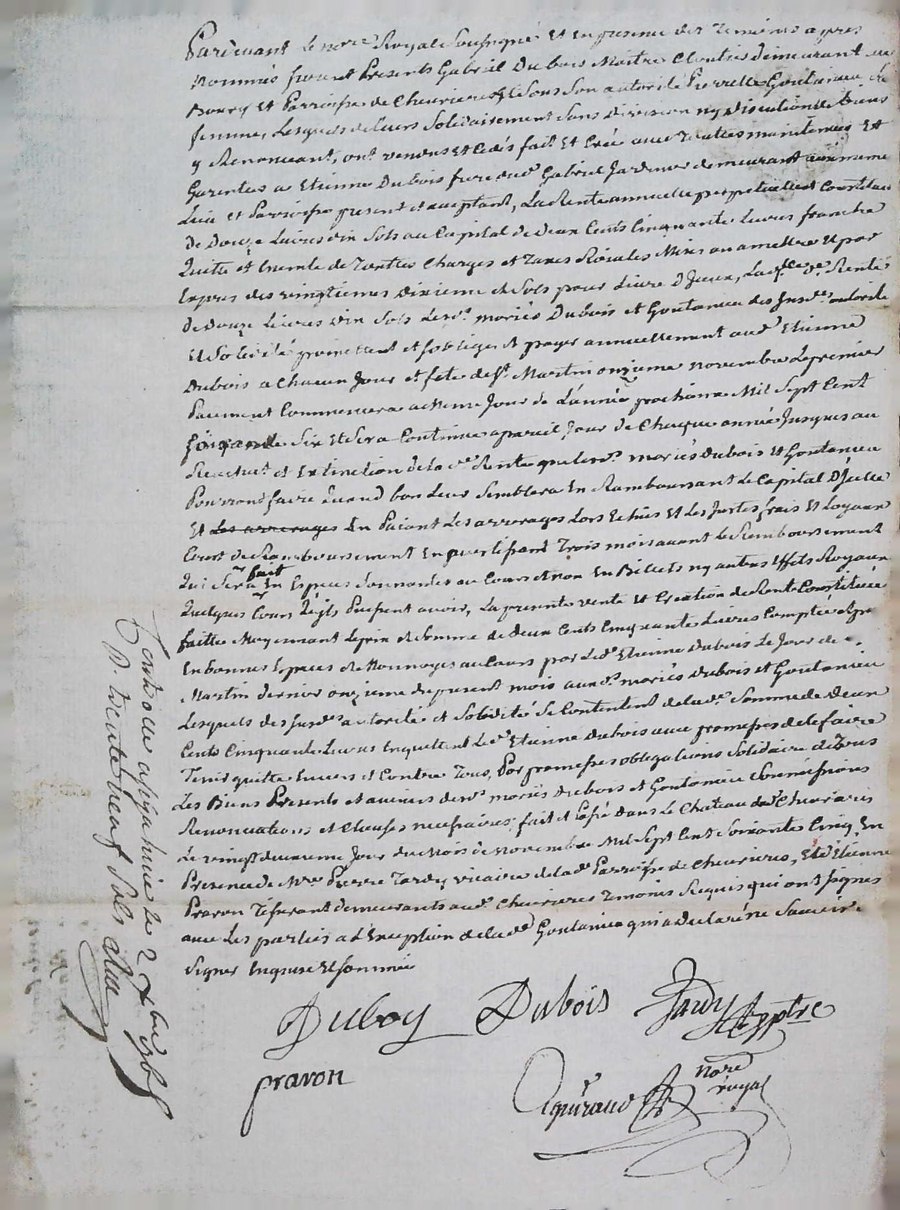 Pardevant le no.re Royal Soussigné Et En presence des Temoins apres
Nommés furent Presents Gabriel Dubois Maitre Cloutier demeurant au
Bourg Et Parroisse de Chevrieres Et Sous Son autorité Pierrette Goutanieu Sa
femme, Lesquels de leurs Solidairement Sans Division ny Discution de biens
y Renonceant, ont vendus Et Cédés fait Et Créé avec Toutes maintenues Et
Garenties a Etienne Dubois frere dud. Gabriel Jardinier demeurant au meme
Lieu et Parroisse present et acceptant, La Rente annuelle perpetuelle et Constituée
de Douze Livres dix Sols au Capital de deux Cents Cinquante Livres franche
Quitte et Exemte de Touttes Charges et Taxes Roiales Mises ou a mettre Et par
Expres des vingtiemes dixieme et Sols pour Livre D'Iceux, Laq.elle d.e Rente
de Douze Livres dix Sols Lesd. mariés Dubois et Goutanieu des Susd. autorité
Et Solidité promettent et s'obligent de payer annuellement aud. Etienne
Dubois a Chacun Jour et fete de St. Martin onzieme novembre Le premier
Paiement Commencera a Meme Jour de L'année prochaine Mil Sept Cent
Soixante Six Et Sera Continué a pareil Jour de Chaque année Jusques au
Reachat et Extinction de la d.e Rente que Lesd. mariés Dubois Et Goutanieu
Pourront faire Quand bon Leur Semblera En Ramboursant Le Capital D'Icelle
Et les arrerages En Paiant Les arrerages Lors Echus Et Les Justes frais Et Loyaux
Couts de Ramboursement En avertissant Trois mois avant Le Remboursement
Qui Sera fait En Especes Sonnantes au Cours et non En Billets ny autres Effets Royaux
Quelques Cours Qu'ils Puissent avoir, La presente vente Et Création de Rente Constituée
faitte Moyennant Le prix et Somme de deux Cents Cinquante Livres Comptée et
En bonnes Especes de Monnoyes au Cours par Led. Etienne Dubois Le Jour de St.
Martin dernier onzieme du present mois auxd. mariés Dubois et Goutanieu
Lesquels des Susd. autorité et Solidité Se Contentent de lad. Somme de deux
Cents Cinquante Livres En quittent Led. Etienne Dubois avec promesses de le faire
Tenir quitte Envers et Contre Tous, Par promesses obligations Solidaire de Tous
Les Biens Presents et avenirs desd. mariés Dubois et Goutanieu Soumissions
Renonciations et Clauses necessaires; fait et Passé Dans Le Chateau dud. Chevrieres
Le vingt deuxieme Jour du Mois de Novembre Mil Sept Cent Soixante Cinq En
Presence de M.re Pierre Tardy vicaire de lad. Parroisse de Chevrieres, Et d'Etienne
Pravon Tisserant demeurants aud. Chevrieres Temoins Requis qui ont Signés
avec Les parties a L'Exception de la d.e Goutanieu qui a Declaré ne Scavoir
Signer Enquise Et Sommée
Duboy Dubois Tardy
pravon
nore
royal